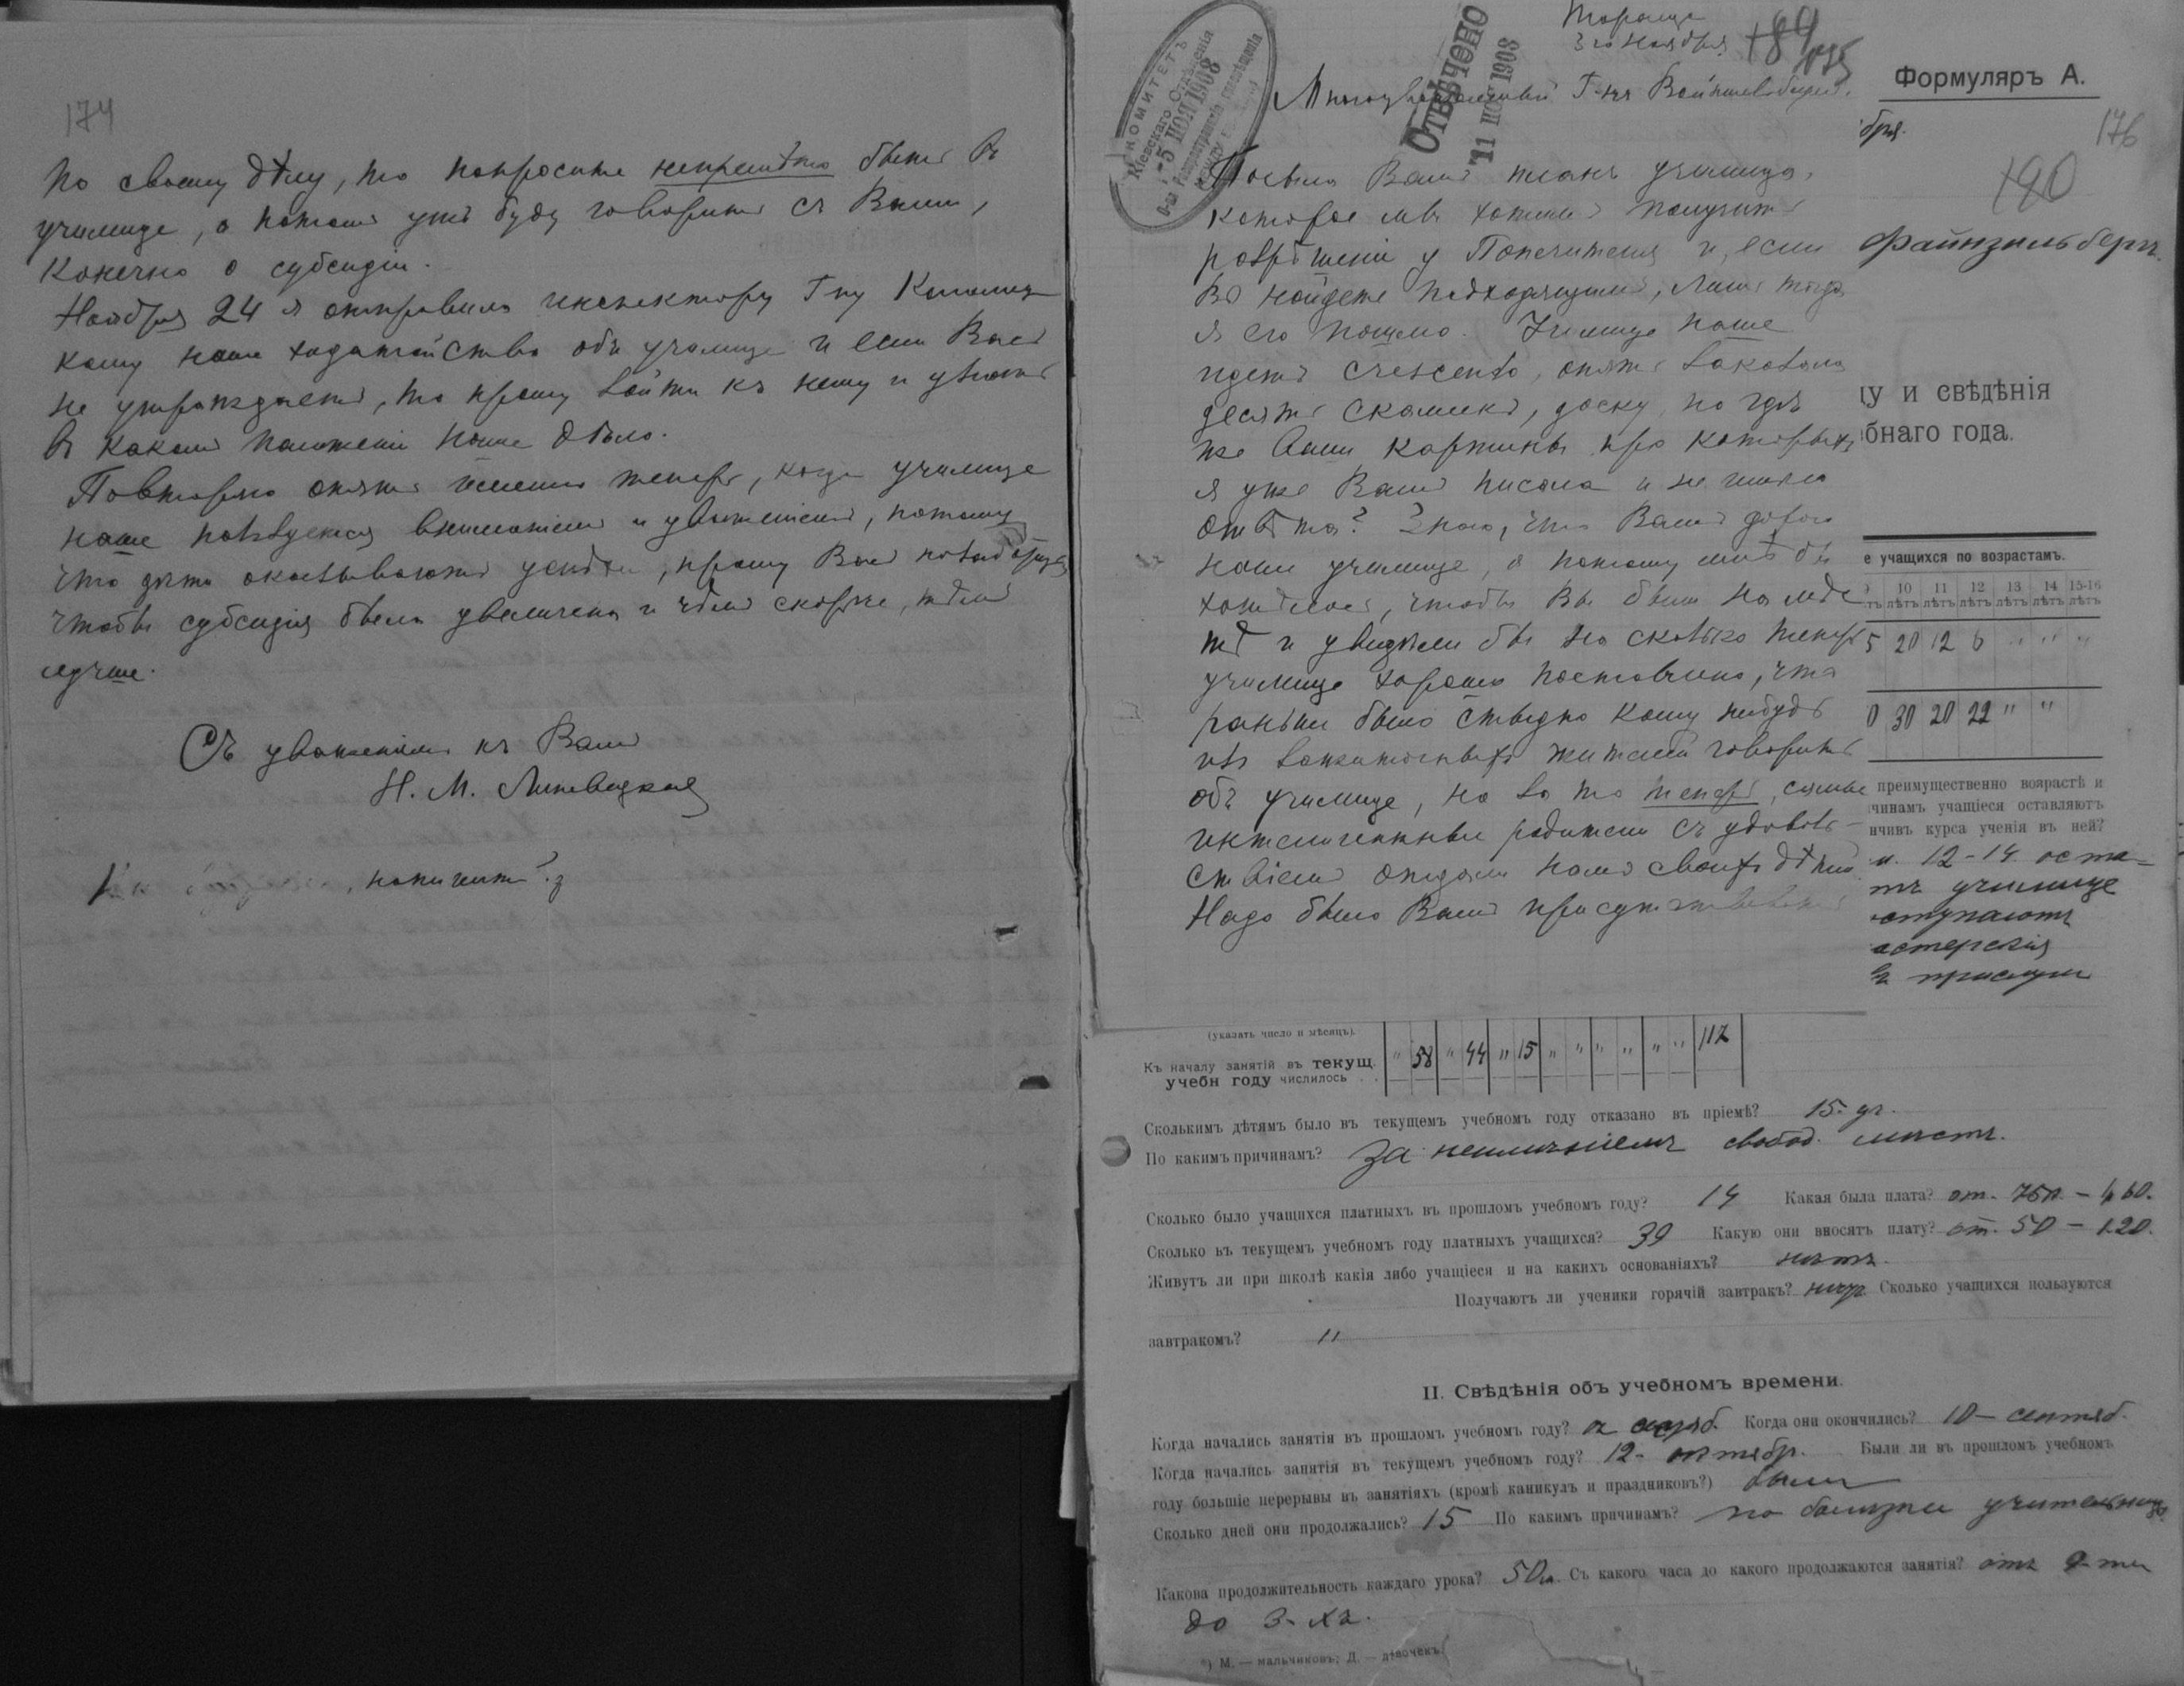 174
по своему дѣлу, то попросите непремѣнно быть въ
училище, а потомъ ужъ буду говорить съ Вами,
конечно о субсидіи.
Ноября 24 я отправила инспектору Г-ну
кому наше ходатайство объ училище и если Васъ
не утруждаетъ, то прошу зайти къ нему и узнать
въ какомъ положеніи наше дѣло.
Повторяю опять именно теперь, когда училище
наше пользуется вниманіемъ и уваженіемъ, потому
что дѣти оказываютъ успѣхи, прошу Васъ
чтобы субсидія была увеличена и чѣмъ скорѣе, тѣмъ
лучше.
Съ уваженіемъ къ Вамъ
Н. М.
КОМИТЕТЪ
Кіевскаго Отдѣленія
-5 НОЯ 1908
О-ва Распространенія просвѣщенія
между
Отвѣчено
11 НОЯ 1908
Тараща
3 го Ноября
Многоуважаемый Г-нъ
Вамъ планъ училища,
которое мы хотимъ получить
разрѣшеніе у Попечителя и, если
Вы найдете подходящимъ, лишь тогда
я его пошлю. Училище наше
идетъ crescendo, опять заказала
десять скамеекъ, доску, но гдѣ
же Ваши картины про которыхъ
я уже Вамъ писала и не имѣла
отвѣта? Знаю, что Вамъ дорого
наше училище, а потому мнѣ бы
хотѣлось, чтобы Вы были на мѣс
тѣ и увидѣли бы на сколько теперь
училище хорошо поставлено, что
раньше было стыдно кому нибудь
изъ зажиточныхъ жителей говорить
объ училище, но за то теперь, самые
интелигентные родители съ удоволь-
ствіемъ отдали намъ своихъ дѣтей.
Надо было Вамъ
Формуляръ А.
бря.
176
190
Файнзильбергъ.
цу и свѣдѣнія
бнаго года.
е учащихся по возрастамъ.
10 11 12 13 14 15-16
лѣтъ лѣтъ лѣтъ лѣтъ лѣтъ лѣтъ
5 20 12 6 " " "
0 30 20 22 " "
преимущественно возрастѣ и
чинамъ учащіеся оставляютъ
нчивъ курса ученія въ ней?
12-14 оста=
тъ училище
оступаютъ
астерскія
(указать число и мѣсяцъ).
Къ началу занятій въ текущ.
учебн году числилось . . " 58 " 44 " 15 " " " " " " 112
Сколькимъ дѣтямъ было въ текущемъ учебномъ году отказано въ пріемѣ? 15.
По какимъ причинамъ? За неимѣніемъ свобод. мѣстъ.
Сколько было учащихся платныхъ въ прошломъ учебномъ году? 14 Какая была плата? от.
Сколько въ текущемъ учебномъ году платныхъ учащихся? 39 Какую они вносятъ плату? от. 50 - 1.20.
Живутъ ли при школѣ какія либо учащіеся и на какихъ основаніяхъ? нѣтъ.
Получаютъ ли ученики горячій завтракъ? Сколько учащихся пользуются
завтракомъ? "
II. Свѣдѣнія объ учебномъ времени.
Когда начались занятія въ прошломъ учебномъ году? Когда они окончились? 10 - сентяб.
Когда начались занятія въ текущемъ учебномъ году? 12- октябр. Были ли въ прошломъ учебномъ
году большіе перерывы въ занятіяхъ (кромѣ каникулъ и праздниковъ?) были
Сколько дней они продолжались? 15 По какимъ причинамъ? по болѣзни учительницы
Какова продолжительность каждаго урока? 50 м. Съ какого часа до какого продолжаются занятія? отъ 9-ти
до 3-хъ.
*) М. — мальчиковъ; Д. — дѣвочекъ.